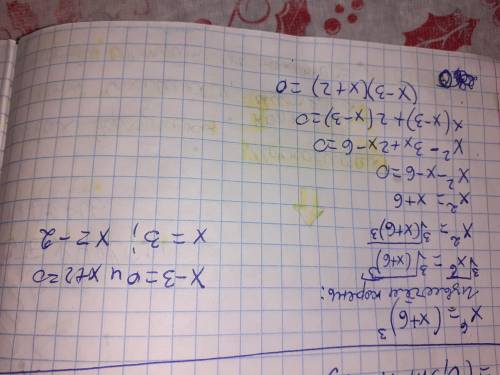 x⁶ = (x+6)³
Извлечём корень:
³√x⁶ = ³√(x+6)³
x² = ³√(x+6)³
x² = x+6
x² - x - 6 = 0
x² - 3x + 2x - 6 = 0
x(x-3) + 2(x-3) = 0
(x-3)(x+2) = 0
x-3=0 и x+2=0
x = 3; x = -2